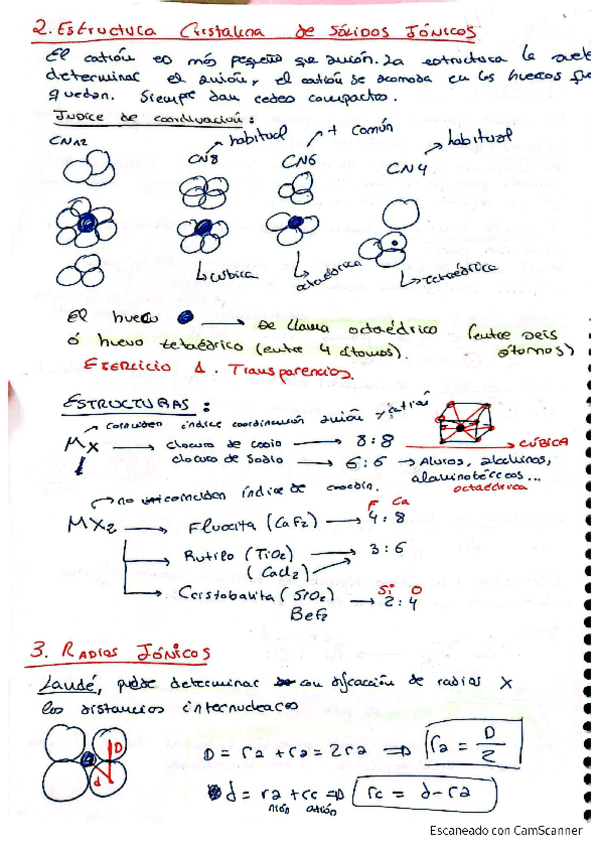 2. Estructura Cristalina de Sólidos Iónicos
El catión es más pequeño que anión. La estructura la suele
determinar el anión, el catión se acomoda en los huecos que
quedan. Siempre dan redes compactas.
Indice de coordinación:
CN12
CN8 habitual
CN6 + común
CN4 habitual
cúbica
octaédrica
tetraédrica
El hueco → se llama octaédrico (entre seis átomos)
ó hueco tetaédrico (entre 4 átomos).
Ejercicio 1. Transparencias.
Estructuras:
coinciden índice coordinación anión y catión
MX → cloruro de cesio → 8:8 → CÚBICA
cloruro de Sodio → 6:6 → Aluros, alcalinos,
alcalinotérreos...
octaédrica
no coinciden índice de coordin.
F Ca
MX2 → Fluorita (CaF2) → 4:8
→ Rutilo (TiO2) → 3:6
(CaCl2)
Si O
→ Cristobalita (SiO2) → 2:4
BeF2
3. Radios Iónicos
Landé, puede determinar con difracción de radios X
las distancias internucleares
D
d
D = ra + ra = 2ra ⇒ ra = D/2
d = ra + rc ⇒ rc = d - ra
nión atión
Escaneado con CamScanner